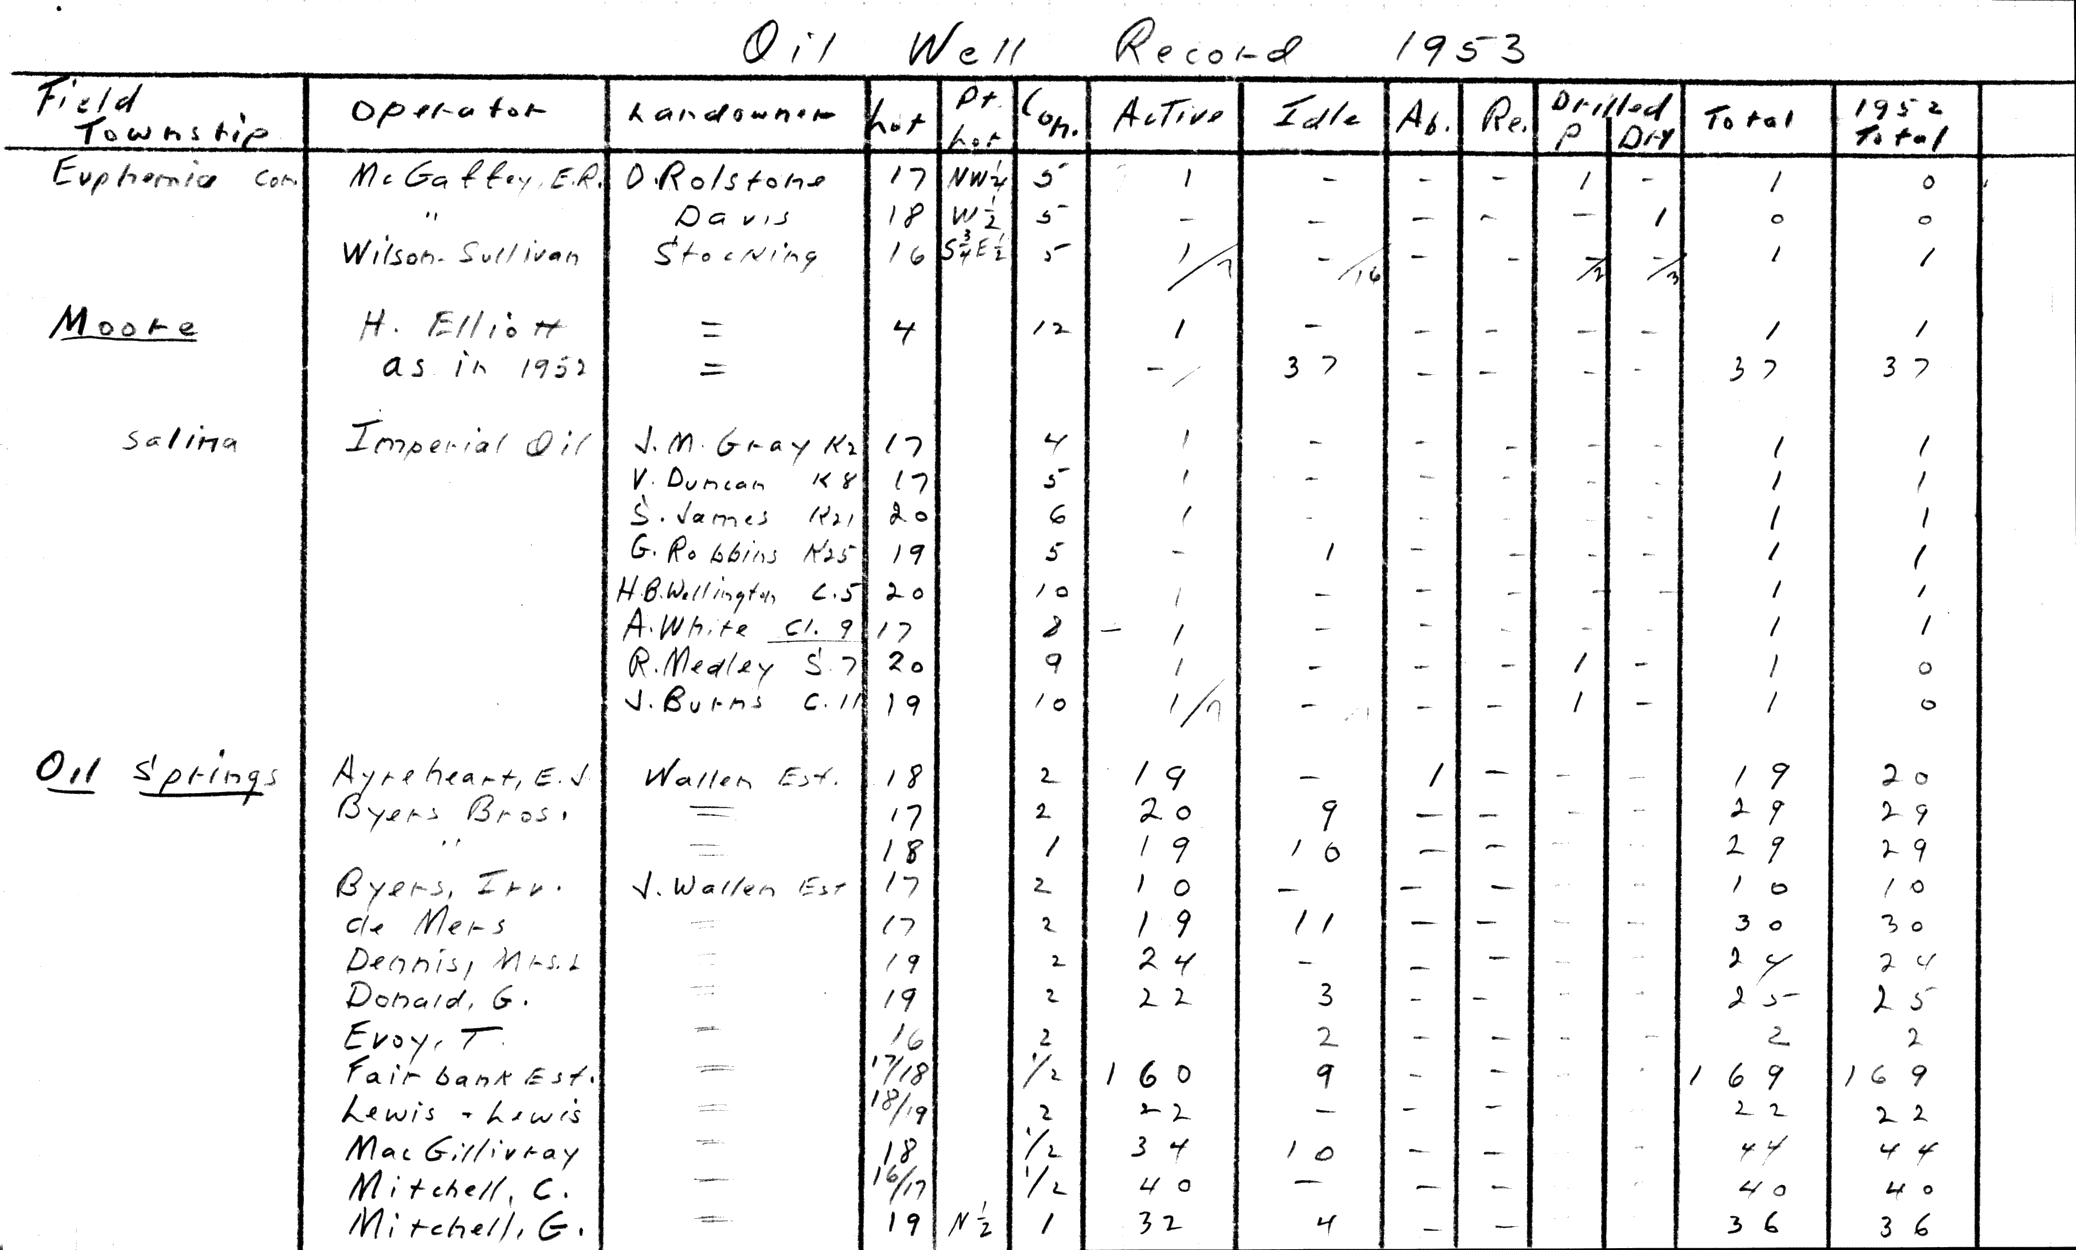 Oil Well Record 1953
Field Township Operator Landowner Lot Pt. Lot Con. Active Idle Ab. Re. Drilled P Dry Total 1952 Total
Euphemia con. McGaffey, E.R. O. Rolstone 17 NW¼ 5 1 - - - 1 - 1 0
" Davis 18 W½ 5 - - - - - 1 0 0
Wilson-Sullivan Stocking 16 S¾E½ 5 1/7 -/16 - - -/2 -/3 1 1
Moore H. Elliott = 4 12 1 - - - - - 1 1
as in 1952 = - 37 - - - - 37 37
Salina Imperial Oil J.M. Gray K2 17 4 1 - - - - - 1 1
V. Duncan K8 17 5 1 - - - - - 1 1
S. James K21 20 6 1 - - - - - 1 1
G. Robbins K25 19 5 - 1 - - - - 1 1
H.B. Wellington C.5 20 10 1 - - - - - 1 1
A. White Cl. 9 17 8 - 1 - - - - - 1 1
R. Medley S.7 20 9 1 - - - 1 - 1 0
J. Burns C.11 19 10 1/7 - - - 1 - 1 0
Oil Springs Ayreheart, E.J. Wallen Est. 18 2 19 - 1 - - - 19 20
Byers Bros. = 17 2 20 9 - - - - 29 29
" = 18 1 19 10 - - - - 29 29
Byers, Irv. J. Wallen Est 17 2 10 - - - - - 10 10
de Mers = 17 2 19 11 - - - - 30 30
Dennis, Mrs. L = 19 2 24 - - - - - 24 24
Donald, G. = 19 2 22 3 - - - - 25 25
Evoy, T. = 16 2 2 - - - - 2 2
Fairbank Est. = 17/18 1/2 160 9 - - - - 169 169
Lewis + Lewis = 18/19 2 22 - - - - - 22 22
MacGillivray = 18 1/2 34 10 - - - - 44 44
Mitchell, C. = 16/17 1/2 40 - - - - - 40 40
Mitchell, G. = 19 N½ 1 32 4 - - - - 36 36